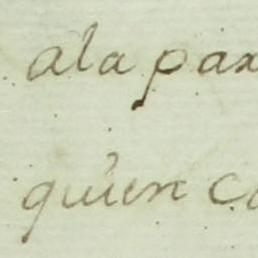 ala pax
quien co